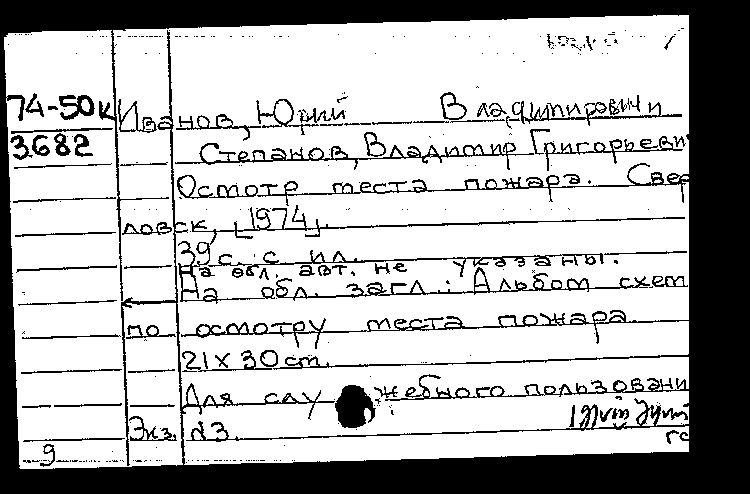 74-50к Иванов, Юрий Владимирович и
3682 Степанов, Владимир Григорьеви
Осмотр места пожара. Свер
ловск, [1974].
39 с. с ил.
На обл. авт. не указаны.
На обл. загл.: Альбом схем
по осмотру места пожара.
21 x 30 cm.
Для служебного пользовани
Экз. №3.
9